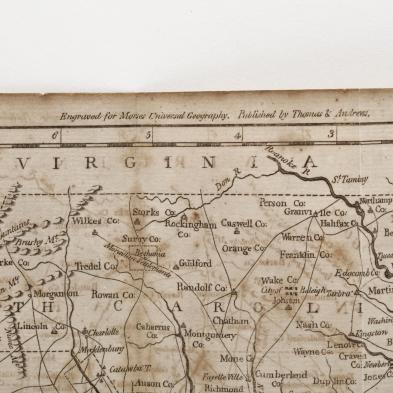 Engraved for Morses Universal Geography. Published by Thomas & Andrews.
6 5 4 3
VIRGINIA
Roanoke R
Dan R
Person Co:
Northamp
Storks Co:
Granville Co:
Wilkes Co:
Rockingham Co:
Caswell Co:
Halifax Co:
Surry Co:
Warren Co:
Brushy Mts
Bethania
Orange Co:
Franklin Co:
rke Co:
Tredel Co:
Guilford
Edgcomb Co:
Wake Co:
Morganton
Rowan Co:
Randolf Co:
City of Raleigh
Tarbro
Martin
Johston
TH CAROLI
Lincoln Co:
Charlotte
Caberus Co:
Chatham
Nash Co:
Montgomery Co:
Kingston
Mecklenburg
Lenoir
Wayne Co:
Craven Co:
Catawba T.
More Co:
Anson Co:
Fayette Ville
Cumberland Co:
Duplin Co:
Jones Co:
Richmond